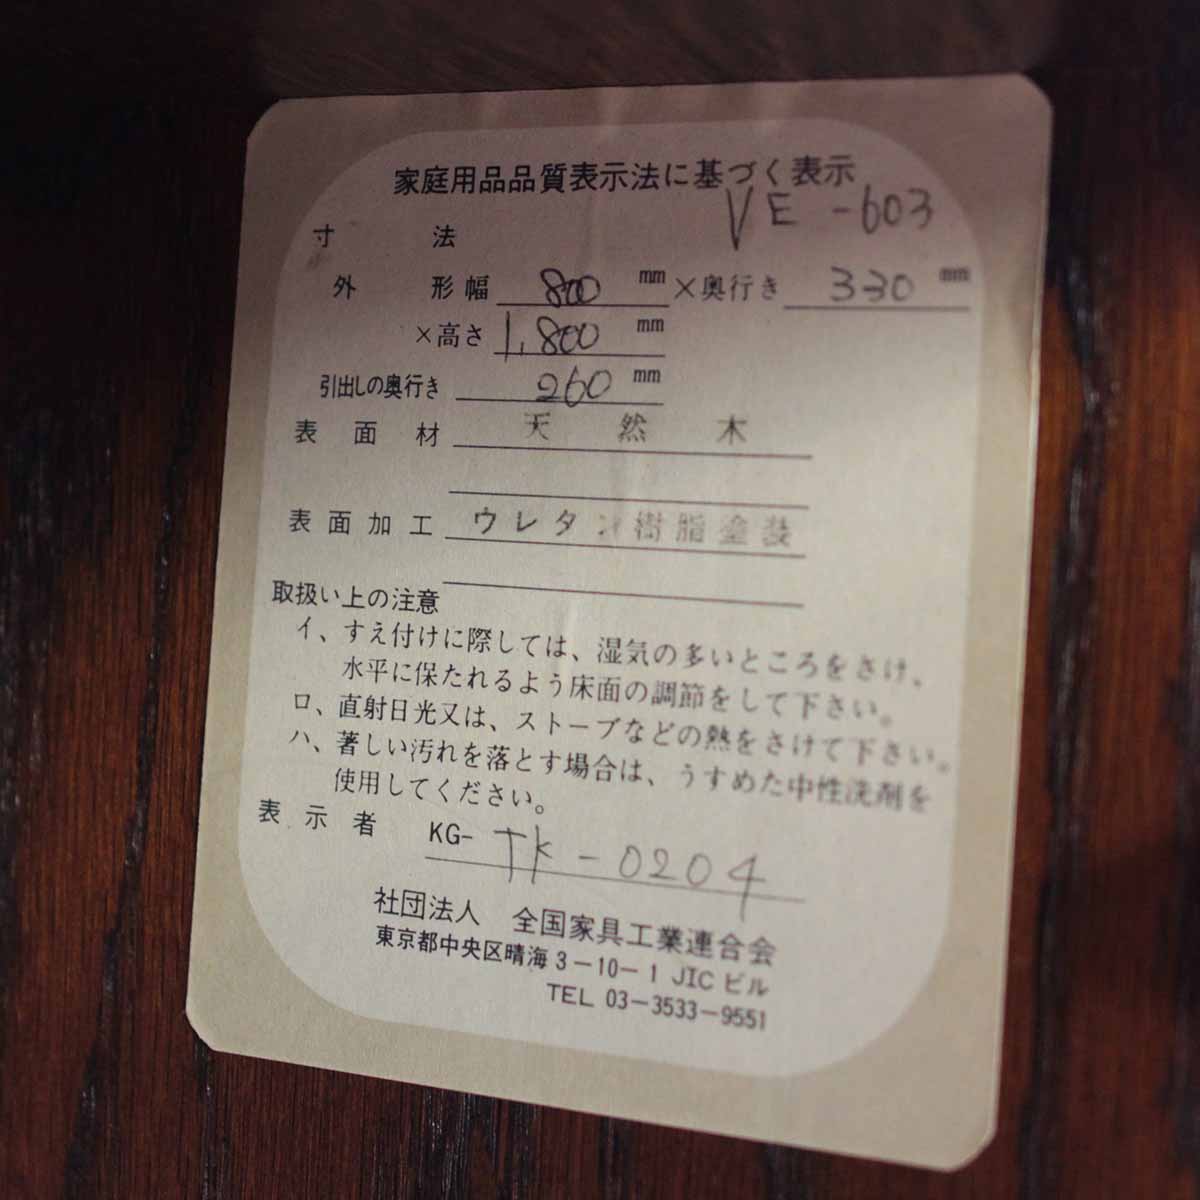 家庭用品品質表示法に基づく表示
VE-603
寸法
外形幅 800 mm ×奥行き 330 mm
×高さ 1,800 mm
引出しの奥行き 260 mm
表面材 天然木
表面加工 ウレタン樹脂塗装
取扱い上の注意
イ、すえ付けに際しては、湿気の多いところをさけ、
水平に保たれるよう床面の調節をして下さい。
ロ、直射日光又は、ストーブなどの熱をさけて下さい。
ハ、著しい汚れを落とす場合は、うすめた中性洗剤を
使用してください。
表示者 KG-TK-0204
社団法人 全国家具工業連合会
東京都中央区晴海3-10-1 JICビル
TEL 03-3533-9551